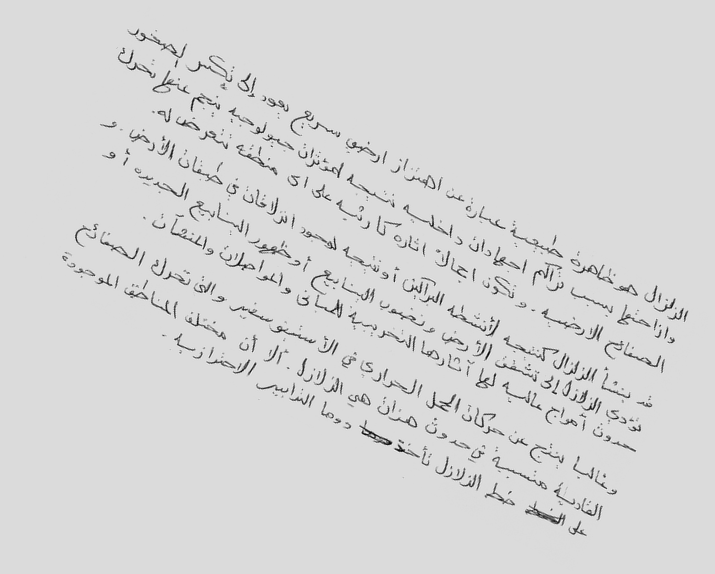 الزلزال هو ظاهرة طبيعية عبارة عن اهتزاز ارضي سريع يعود إلى تكسر الصخور
وإزاحتها بسبب تراكم اجهادات داخلية نتيجة لمؤثرات جيولوجية ينجم عنها تحرك
الصفائح الارضية . وتكون اجمالا اثاره كارثية على اى منطقة تتعرض له.
قد ينشأ الزلزال كنتيجة لأنشطة البراكين أو نتيجة لوجود انزلاقات في طبقات الأرض . و
تؤدي الزلازل إلى تشقق الأرض ونضوب الينابيع أو ظهور الينابيع الجديدة أو
حدوث أمواج عالمية لها آثارها التخريبية للمباني والمواصلات والمنشآت .
وغالبا ينتج عن حركات الحمل الحراري في الأستينوسفير والتي تحرك الصفائح
القارية متسببة في حدوث هزات هي الزلازل . ألا أن مختلف المناطق الموجودة
على خط الزلازل تأخذ دوما التدابير الاحترازية .